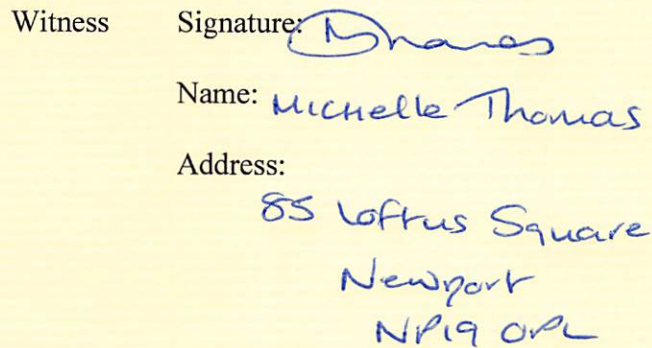 Witness Signature:
Name: Michelle Thomas
Address:
85 Loftus Square
Newport
NP19 0PL